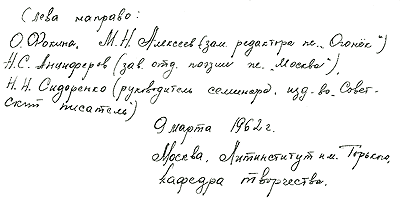 Слева направо:
О. Фокина, М.Н. Алексеев (зам. редактора ж. „Огонёк“)
Н.С. Анциферов (зав. отд. поэзии ж. „Москва“),
Н.Н. Сидоренко (руководитель семинара, изд-во „Совет-
ский писатель“)
9 марта 1962 г.
Москва. Литинститут им. Горького,
кафедра творчества.